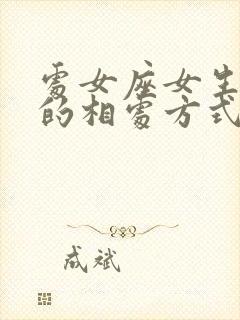 處女座女生
的相處方式
成斌